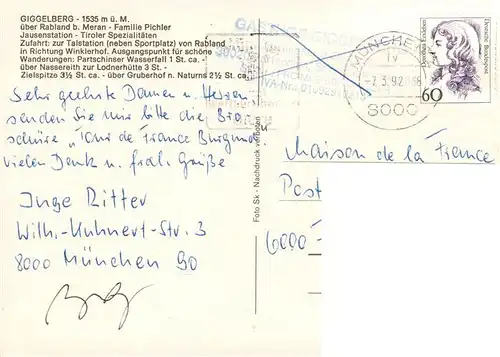 GIGGELBERG - 1535 m ü. M.
über Rabland b. Meran - Familie Pichler
Jausenstation - Tiroler Spezialitäten
Zufahrt: zur Talstation (neben Sportplatz) von Rabland
in Richtung Winklerhof. Ausgangspunkt für schöne
Wanderungen: Partschinser Wasserfall 1 St. ca. -
über Nassereith zur Lodnerhütte 3 St. -
Zielspitze 3½ St. ca. - über Gruberhof n. Naturns 2½ St. ca.
Sehr geehrte Damen u. Herren
senden Sie mir bitte die Bro
schüre "Tour de France Burgund
vielen Dank u. frdl. Grüße
Inge Ritter
Wilh.-Kuhnert-Str. 3
8000 München 90
Foto Sk - Nachdruck verboten
MÜNCHEN
8000
Deutsche Bundespost
60
Maison de la France
Post
6000